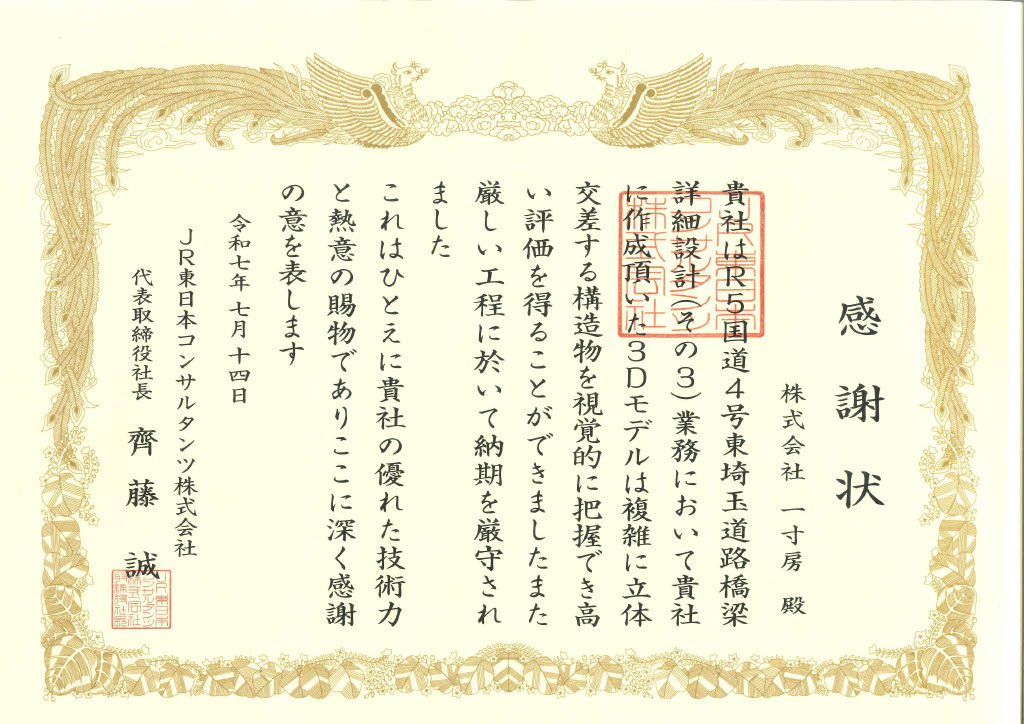 感謝状
株式会社 一寸房 殿
貴社はR5国道4号東埼玉道路橋梁
詳細設計(その3)業務において貴社
に作成頂いた3Dモデルは複雑に立体
交差する構造物を視覚的に把握でき高
い評価を得ることができましたまた
厳しい工程に於いて納期を厳守され
ました
これはひとえに貴社の優れた技術力
と熱意の賜物でありここに深く感謝
の意を表します
令和七年七月十四日
JR東日本コンサルタンツ株式会社
代表取締役社長 齊藤 誠